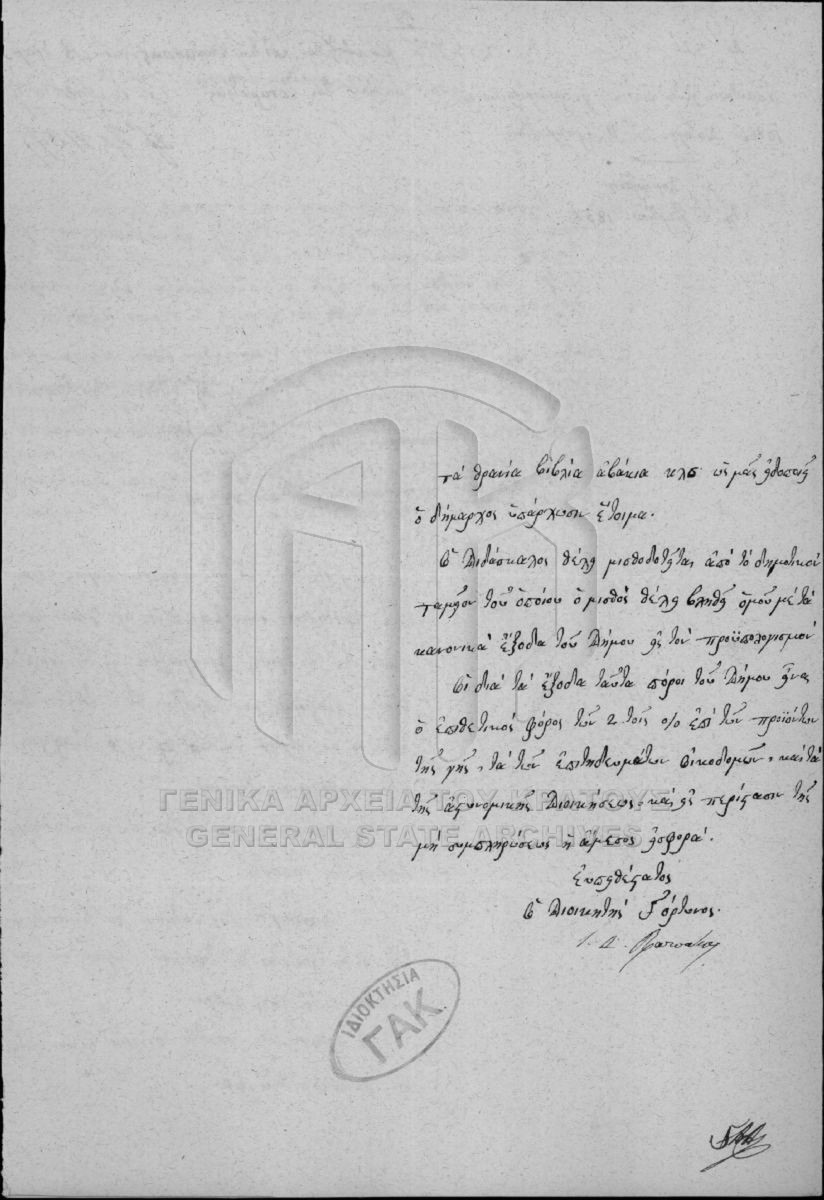 τὰ θρανία βιβλία ἀβάκια κλπ ὡς μᾶς εἰδοποιεῖ
ὁ δήμαρχος ὑπάρχωσιν ἕτοιμα.
Ὁ Διδάσκαλος θέλει μισθοδοτεῖται ἀπὸ τὸ δημοτικὸν
ταμεῖον τοῦ ὁποίου ὁ μισθὸς θέλει βληθῆ ὁμοῦ μὲ τὰ
κανονικὰ ἔξοδα τοῦ Δήμου εἰς τὸν προϋπολογισμόν
Οἱ διὰ τὰ ἔξοδα ταῦτα πόροι τοῦ Δήμου εἶναι
ὁ ἐπιθετικὸς φόρος τῶν 2 τοῖς 0/0 ἐπὶ τῶν προϊόντων
τῆς γῆς, τὰ τῶν ἐπιτηδευμάτων οἰκοδομῶν, καὶ τὰ
τῆς ἀστυνομικῆς Διοικήσεως, καὶ εἰς περίστασιν τῆς
μὴ συμπληρώσεως ἡ ἄμεσος εἰσφορά.
Εὐπειθέστατος
Ὁ Διοικητὴς Γόρτυνος.
ΓΕΝΙΚΑ ΑΡΧΕΙΑ ΤΟΥ ΚΡΑΤΟΥΣ
GENERAL STATE ARCHIVES
ΙΔΙΟΚΤΗΣΙΑ
ΓΑΚ